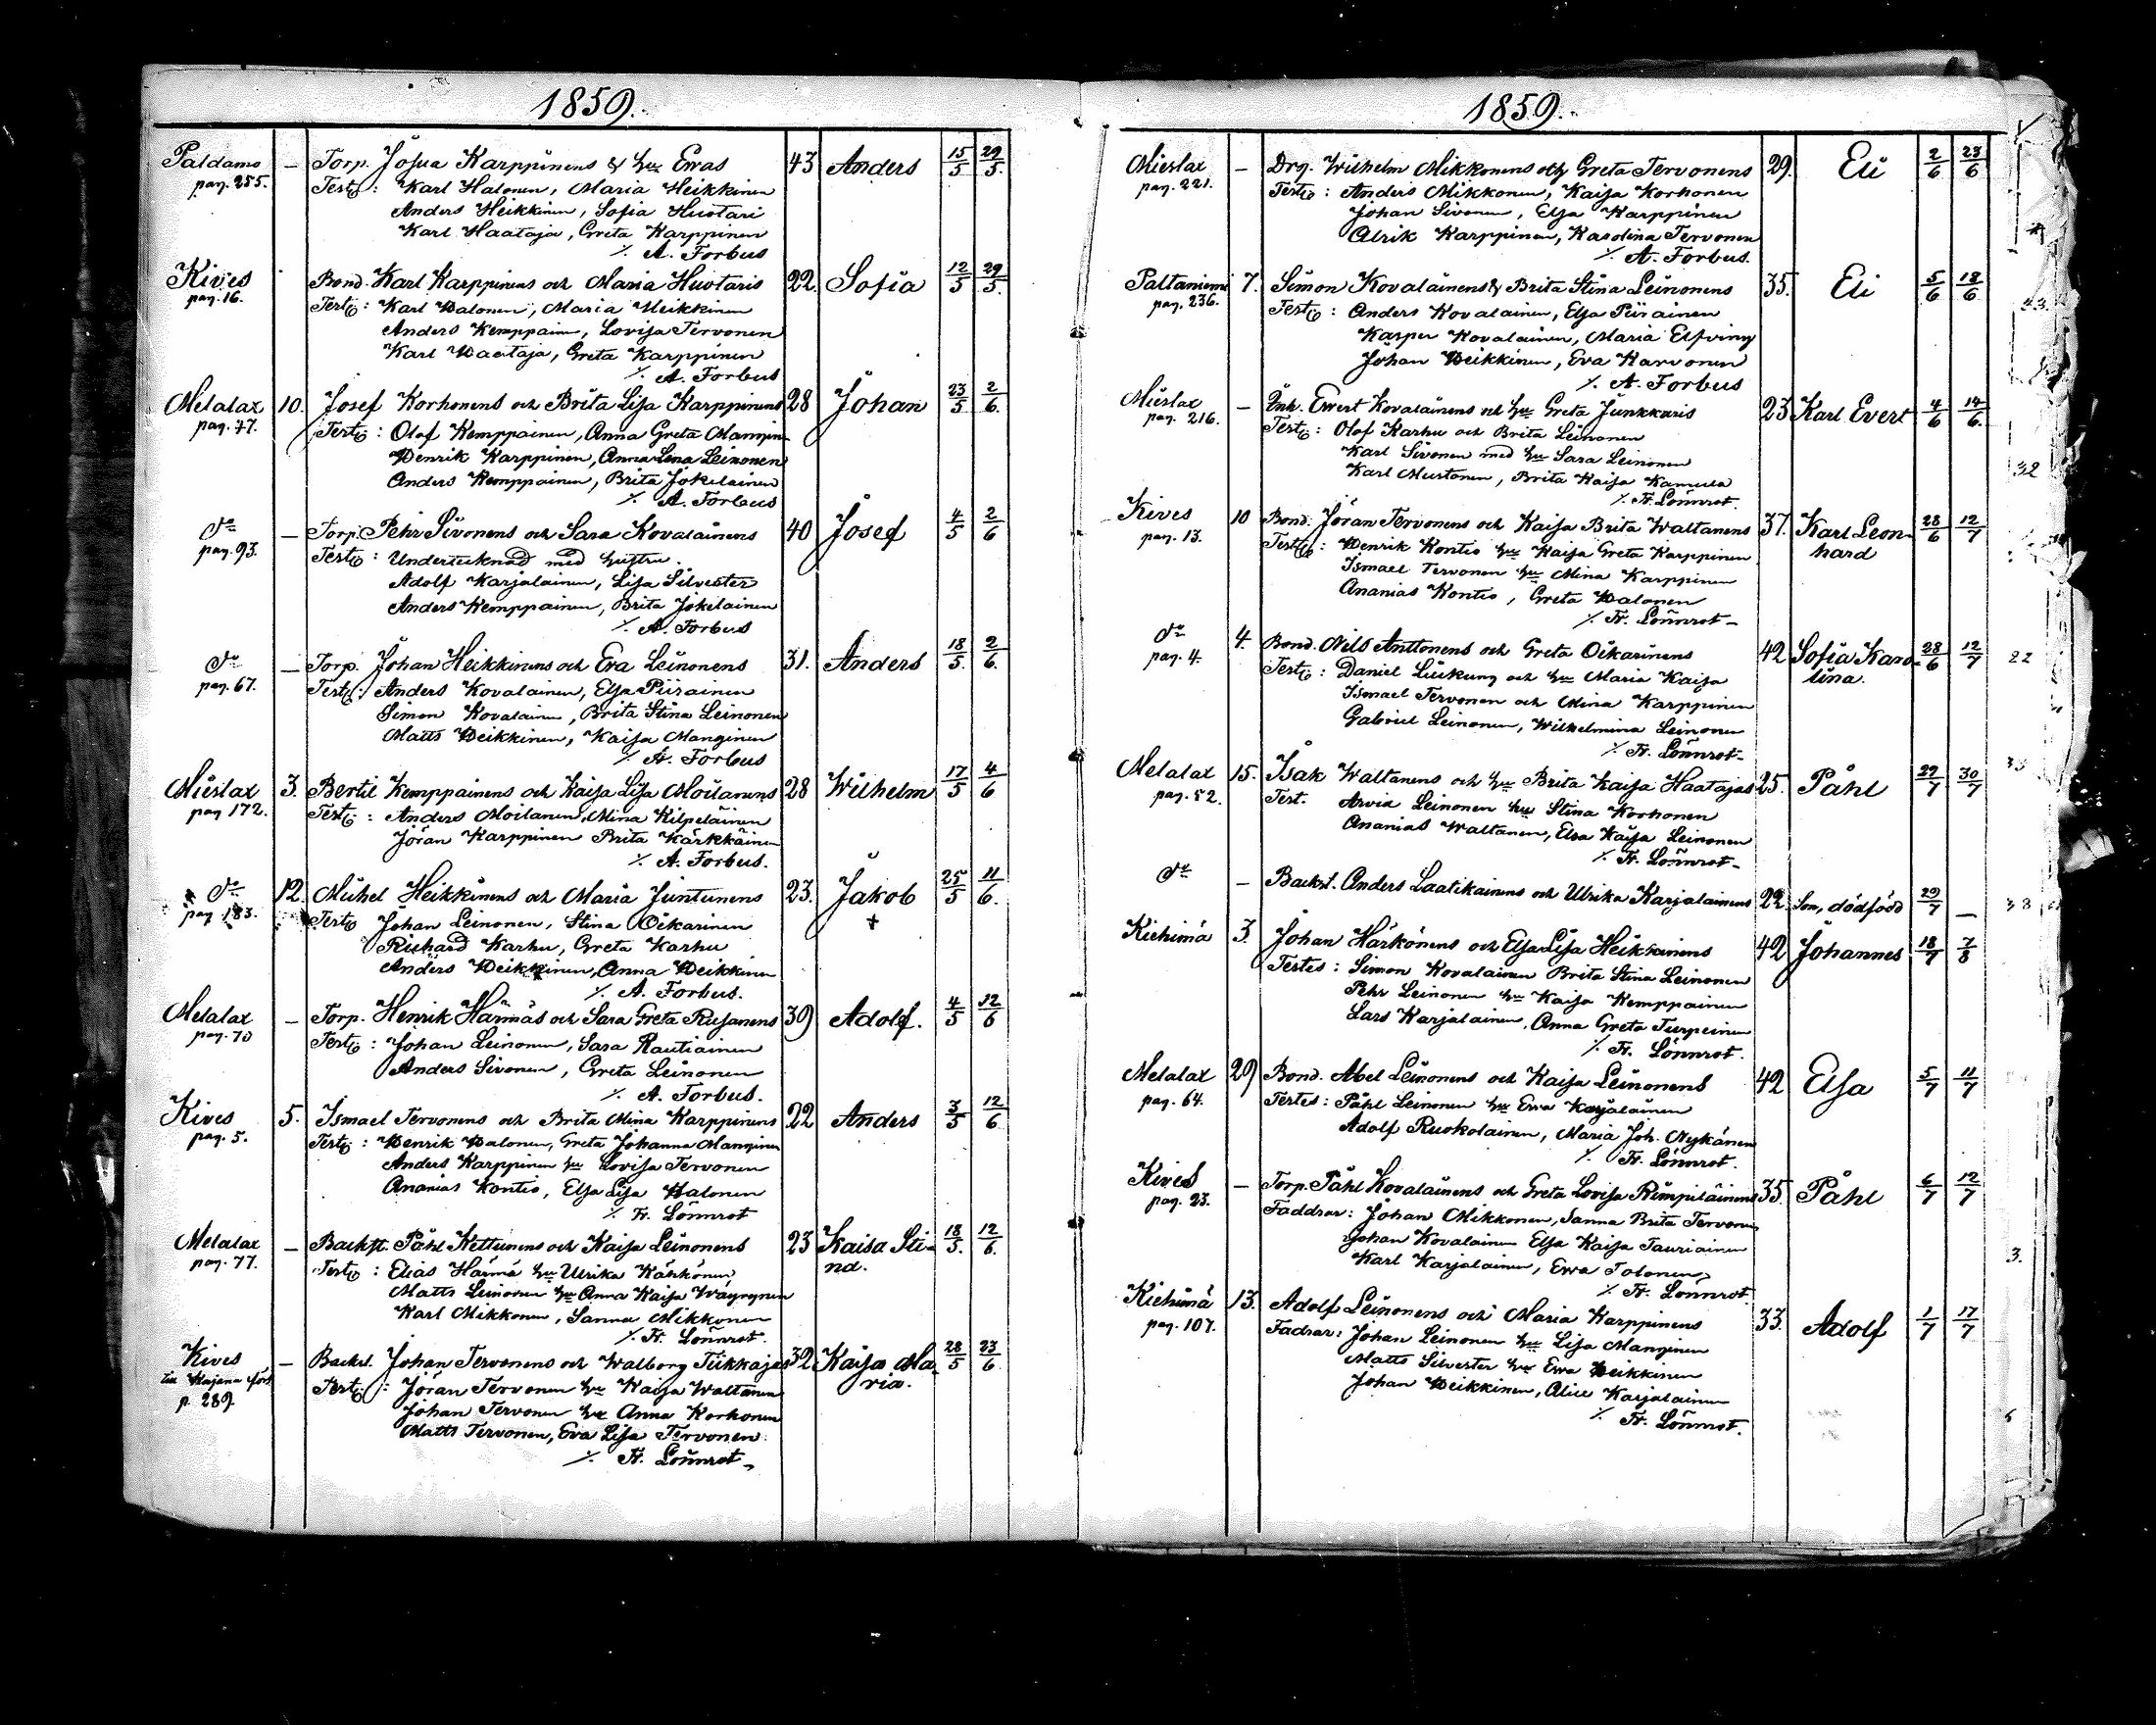 1859.
Paldamo — Torp. Josua Karppinens & hu Ewas 43 Anders 15/5 29/5.
pag. 255. Test: Karl Halonen, Maria Heikkinen
Anders Heikkinen, Sofia Huotari
Karl Haataja, Greta Karppinen
/. A. Forbus
Kives Bond. Karl Karppinens och Maria Huotaris 22. Sofia 12/5 29/5.
pag. 16. Test: Karl Halonen, Maria Heikkinen
Anders Kemppainen, Lovisa Tervonen
Karl Haataja, Greta Karppinen
/. A. Forbus
Melalax 10. Josef Korhonens och Brita Lisa Karppinens 28 Johan 23/5 2/6.
pag. 77. Test: Olof Kemppainen, Anna Greta Mangin-
Henrik Karppinen, Anna Lena Leinonen
Anders Kemppainen, Brita Jokelainen
/. A. Forbus
Do — Torp. Pehr Sivonens och Sara Kovalainens 40 Josef 4/5 2/6
pag. 93. Test: Undertecknad med hustru.
Adolf Karjalainen, Lisa Silvester
Anders Kemppainen, Brita Jokelainen
/. A. Forbus
Do — Torp. Johan Heikkinens och Eva Leinonens 31. Anders 18/5. 2/6.
pag. 67. Test: Anders Kovalainen, Elsa Piirainen
Simon Kovalainen, Brita Stina Leinonen
Matts Heikkinen, Kaisa Manginen
/. A. Forbus
Mieslax 3. Bertil Kemppainens och Kaisa Lisa Moilanens 28 Wilhelm 17/5 4/6
pag 172. Test: Anders Moilanen, Mina Kilpeläinen
Jöran Karppinen Brita Kärkkäinen
/. A. Forbus.
Do 12. Michel Heikkinens och Maria Juntunens 23. Jakob 25/5 11/6.
pag 183. Test Johan Leinonen, Stina Oikarinen +
Richard Karhu, Greta Karhu
Anders Heikkinen, Anna Heikkinen
/. A. Forbus.
Melalax — Torp. Henrik Härmäs och Sara Greta Rusanens 39 Adolf. 4/5 12/6
pag. 70 Test: Johan Leinonen, Sara Rautiainen
Anders Sivonen, Greta Leinonen
/. A. Forbus.
Kives 5. Ismael Tervonens och Brita Mina Karppinens 22 Anders 3/5 12/6
pag. 5. Test: Henrik Halonen, Greta Johanna Manginen
Anders Karppinen hu Lovisa Tervonen
Ananias Kontio, Elsa Lisa Halonen
/. Fr. Lönnrot
Melalax — Backst. Påhl Kettunens och Kaisa Leinonens 23 Kaisa Sti- 18/5. 12/6.
pag. 77. Test: Elias Härmä hu Ulrika Härkönen na.
Matts Leinonen hu Anna Kaisa Wäyrynen
Karl Mikkonen, Sanna Mikkonen
/. Fr. Lönnrot.
Kives — Backst. Johan Tervonens och Walborg Tiikkajas 32 Kaisa Ma- 28/5 23/6
till Kajana förs. Test: Jöran Tervonen hu Kaisa Waltanen ria.
p. 289. Johan Tervonen hu Anna Korhonen
Matts Tervonen, Eva Lisa Tervonen.
/. Fr. Lönnrot
1859.
Mieslax — Drg. Wilhelm Mikkonens och Greta Tervonens 29. Eli 2/6 23/6
pag. 221. Test: Anders Mikkonen, Kaisa Korhonen
Johan Sivonen, Elsa Karppinen
Alrik Karppinen, Karolina Tervonen
/. A. Forbus.
Paltaniemi 7. Simon Kovalainens & Brita Stina Leinonens 35. Eli 5/6 18/6
pag. 236. Test: Anders Kovalainen, Elsa Piirainen
Kasper Kovalainen, Maria Elfving
Johan Heikkinen, Eva Karvonen
/. A. Forbus
Mieslax — Enk. Ewert Kovalainens och hu Greta Junkkaris 23 Karl Evert 4/6 14/6.
pag. 216. Test: Olof Karhu och Brita Leinonen
Karl Sivonen med hu Sara Leinonen
Karl Mustonen, Brita Kaisa Kamula
/. Fr. Lönnrot.
Kives 10 Bond. Jöran Tervonens och Kaisa Brita Waltanens 37. Karl Leon- 28/6 12/7
pag. 13. Test: Henrik Kontio hu Kaisa Greta Karppinen hard
Ismael Tervonen hu Mina Karppinen
Ananias Kontio, Greta Halonen
/. Fr. Lönnrot
Do 4. Bond. Nils Anttonens och Greta Oikarinens 42 Sofia Karo- 28/6 12/7
pag. 4. Test: Daniel Liukung och hu Maria Kaisa lina.
Ismael Tervonen och Mina Karppinen
Gabriel Leinonen, Wilhelmina Leinonen
/. Fr. Lönnrot
Melalax 15. Isak Waltanens och hu Brita Kaisa Haatajas 25. Påhl 29/7 30/7
pag. 52. Test. Arvia Leinonen hu Stina Korhonen
Ananias Waltanen, Elsa Kaisa Leinonen
/. Fr. Lönnrot
Do — Backst. Anders Laatikainens och Ulrika Karjalainens 22. Son, dödfödd 29/7 —
Kiehimä 3. Johan Härkönens och Elsa Lisa Heikkinens 42 Johannes 18/7 7/8
Testes: Simon Kovalainen Brita Stina Leinonen
Pehr Leinonen hu Kaisa Kemppainen
Lars Karjalainen, Anna Greta Turpeinen
/. Fr. Lönnrot.
Melalax 29 Bond. Abel Leinonens och Kaisa Leinonens 42 Elsa 5/7 11/7
pag. 64. Testes: Påhl Leinonen hu Ewa Karjalainen
Adolf Ruokolainen, Maria Joh. Nykänen
/. Fr. Lönnrot.
Kives — Torp. Påhl Kovalainens och Greta Lovisa Rimpiläinens 35. Påhl 6/7 12/7
pag. 23. Faddrar: Johan Mikkonen, Sanna Brita Tervonen
Johan Kovalainen Elsa Kaisa Tauriainen
Karl Karjalainen, Ewa Tolonen
/. Fr. Lönnrot.
Kiehimä 13. Adolf Leinonens och Maria Karppinens 33. Adolf 1/7 17/7
pag. 107. Fadrar: Johan Leinonen hu Lisa Manginen
Matts Silvester hu Ewa Heikkinen
Johan Heikkinen, Alice Karjalainen
/. Fr. Lönnrot.